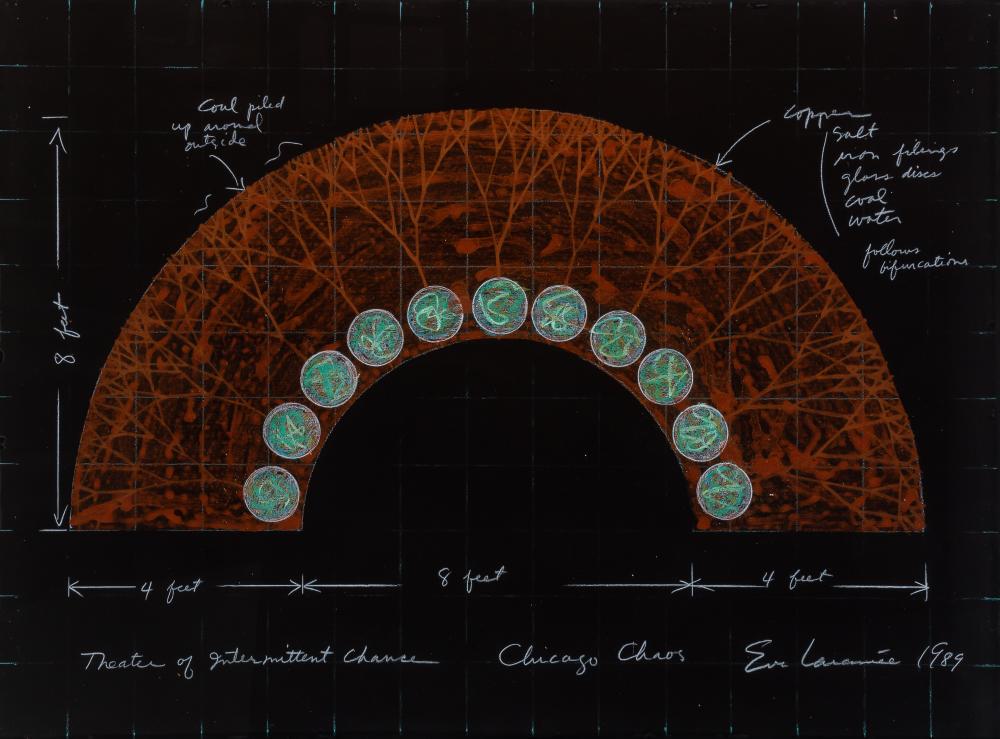 Coal piled
up around
outside
copper
salt
iron filings
glass discs
coal
water
follows
bifurcations
8 feet
4 feet
8 feet
4 feet
Theater of Intermittent Chance Chicago Chaos Eve Laramée 1989